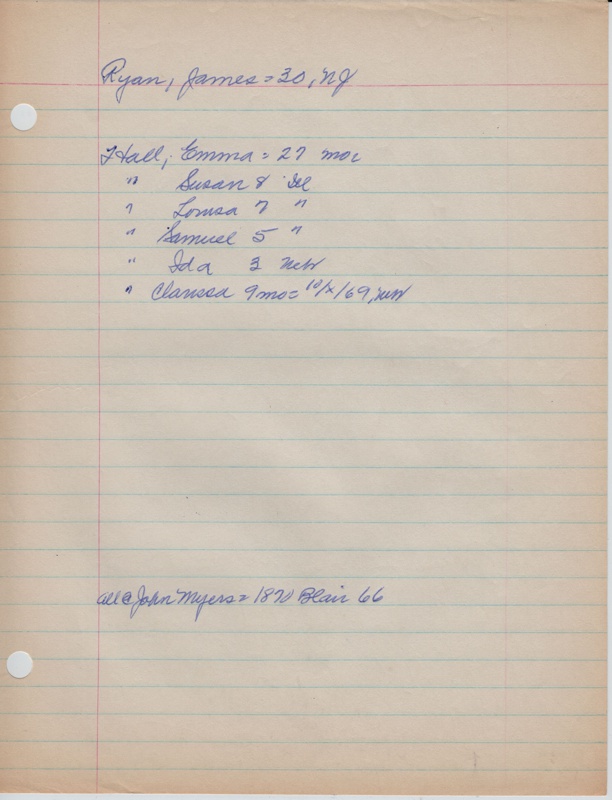 Ryan, James = 30, NJ
Hall, Emma = 27 mo
" Susan 8 Ill
" Louisa 7 "
" Samuel 5 "
" Ida 3 Neb
" Clarissa 9 mo = 10/x/69, Neb
all @ John Myers = 1870 Blair 66